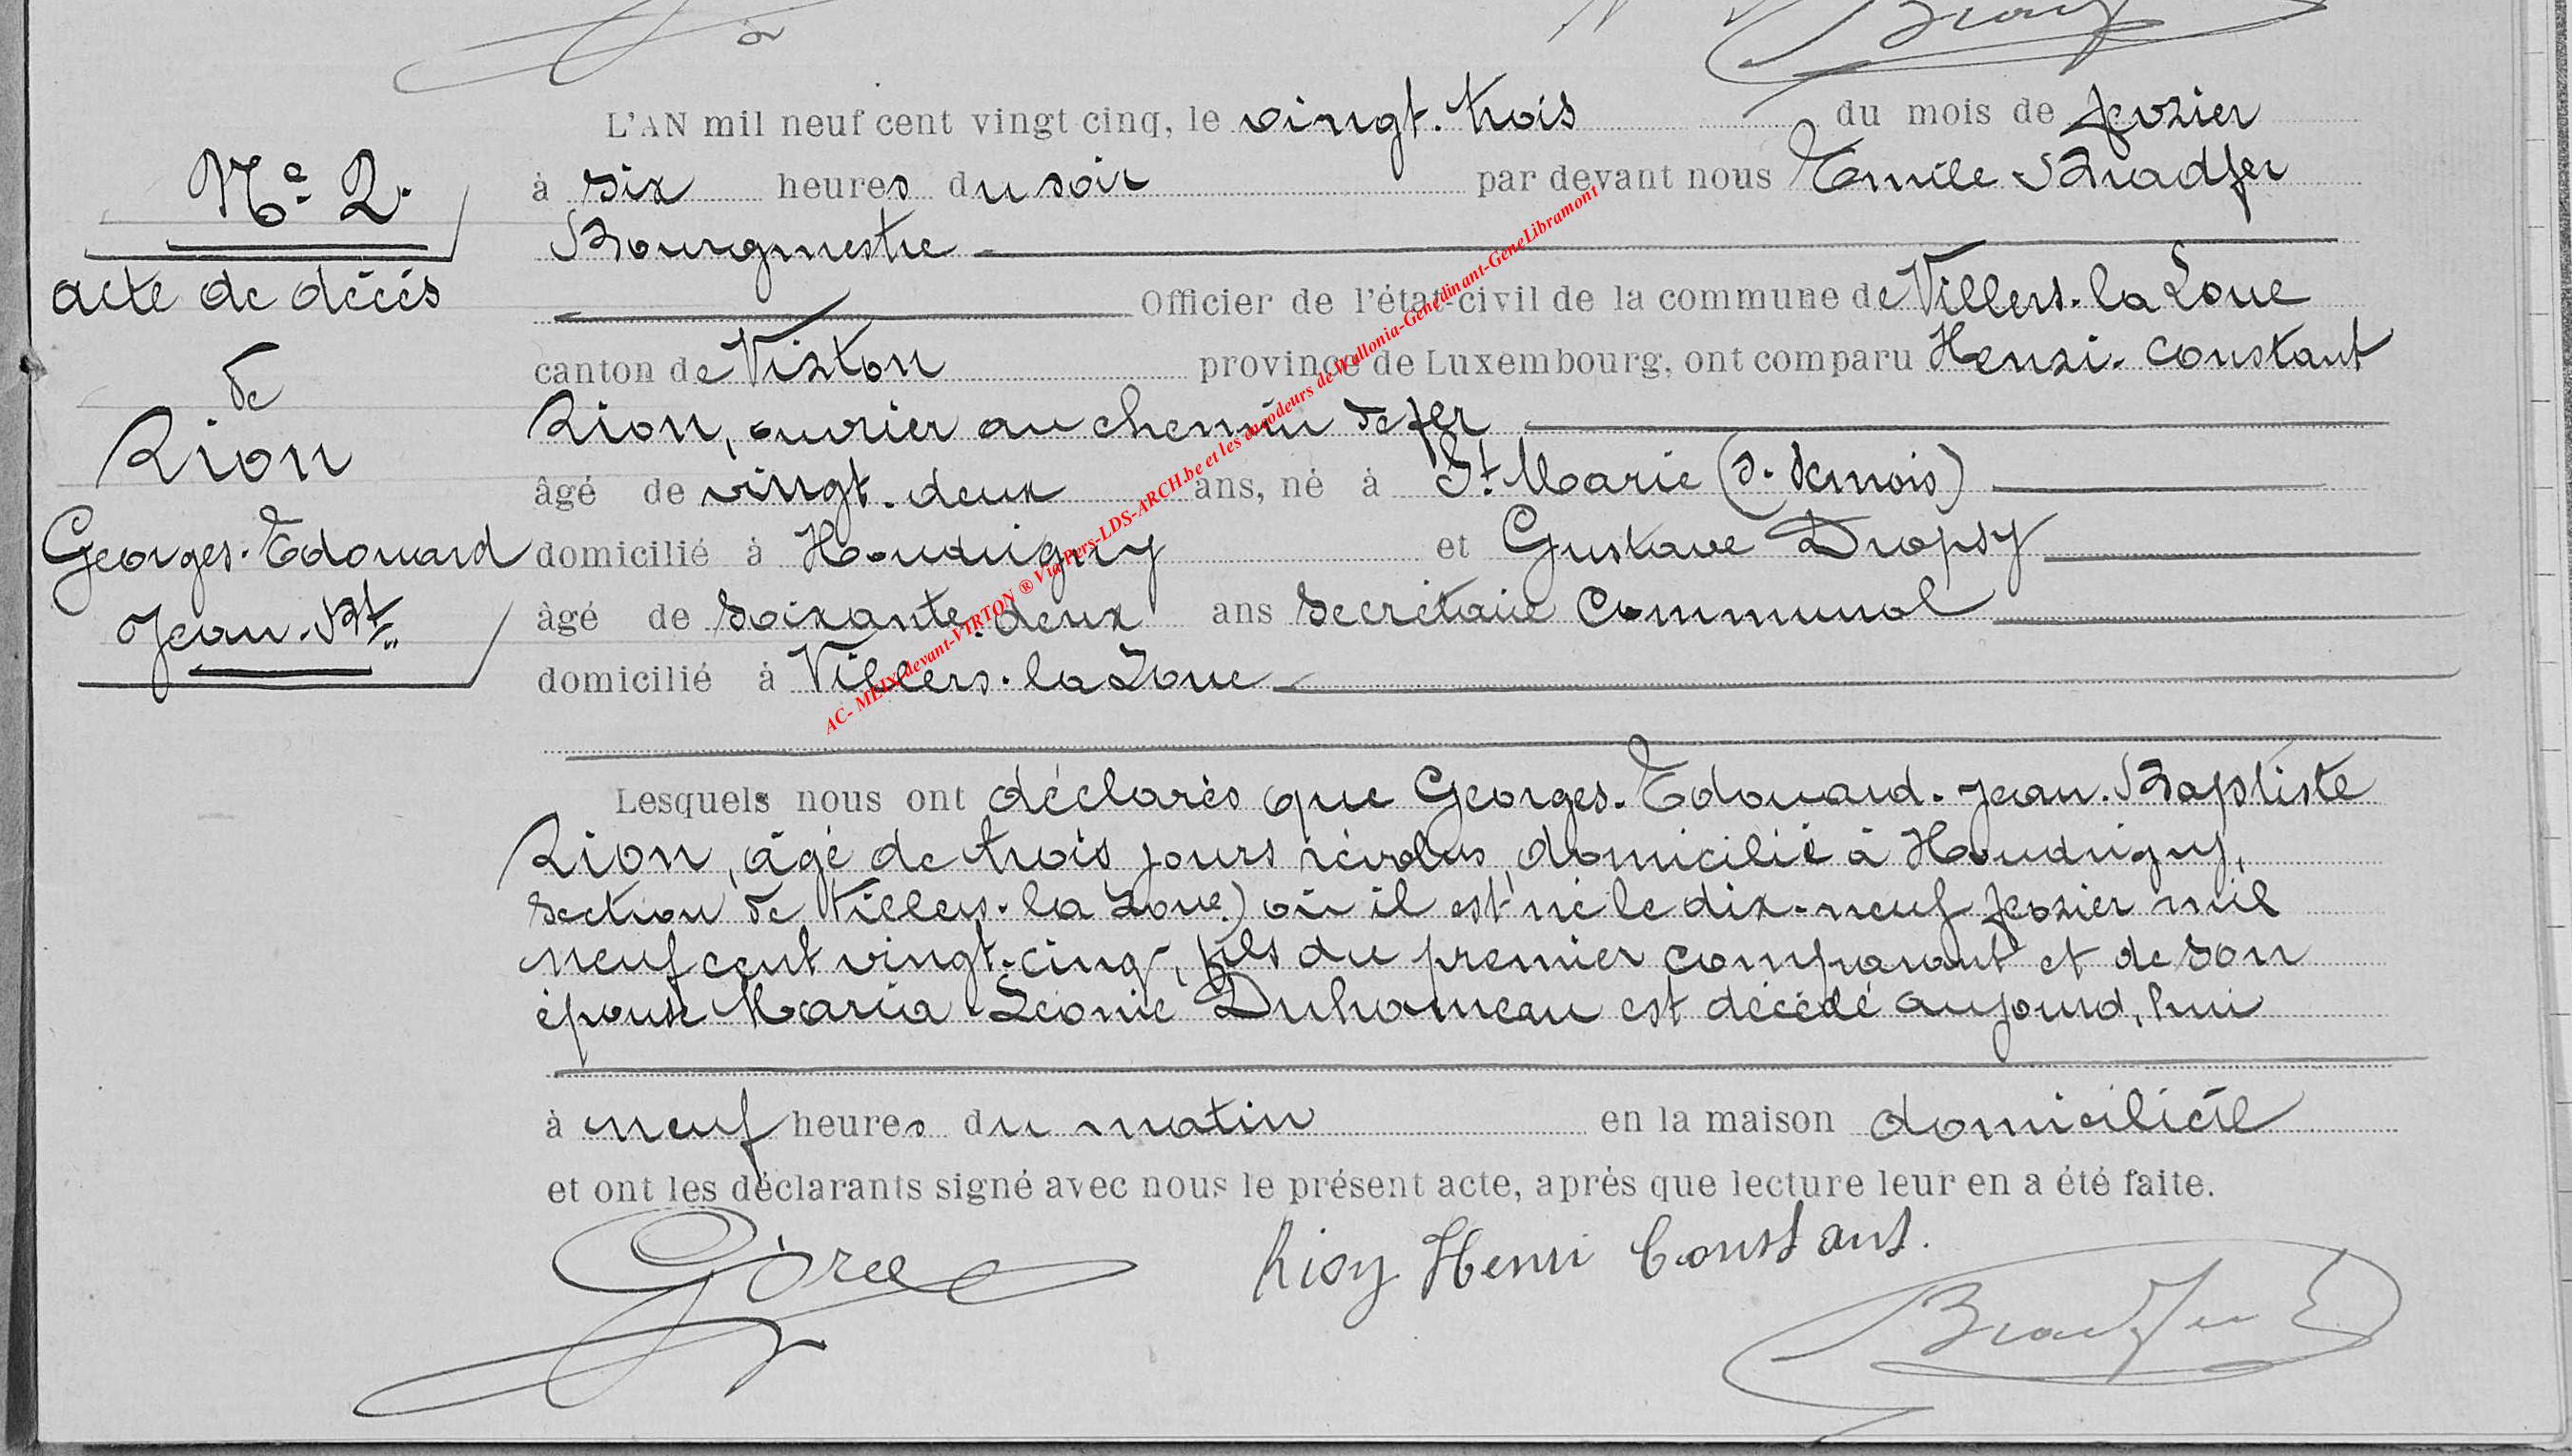 L'AN mil neuf cent vingt cinq, le vingt-trois du mois de fevrier
à six heures du soir par devant nous Emile Bradfer
Bourgmestre
Officier de l'état-civil de la commune de Villers-la Loue
canton de Virton province de Luxembourg, ont comparu Henri-Constant
Rion, ouvrier au chemin de fer
âgé de vingt-deux ans, né à St Marie (s. Semois)
domicilié à Houdrigny et Gustave Dropsy
âgé de soixante-deux ans secrétaire communal
domicilié à Villers-la Loue
No 2.
acte de décès
de
Rion
Georges-Edouard
Jean-Bte
Lesquels nous ont déclarés que Georges-Edouard-Jean-Baptiste
Rion, âgé de trois jours révolus, domicilié à Houdrigny,
section de Villers-la Loue) où il est né le dix-neuf fevrier mil
neuf cent vingt-cinq, fils du premier comparant et de son
épouse Maria Léonie Duhameau est décédé aujourd'hui
à neuf heures du matin en la maison domicilièle
et ont les déclarants signé avec nous le présent acte, après que lecture leur en a été faite.
Rion Henri Constant.
Bradfer E
AC- MEIX-devant-VIRTON ® Via Pers-LDS-ARCH.be et les encodeurs de Wallonia-Genedinant-GeneLibramont